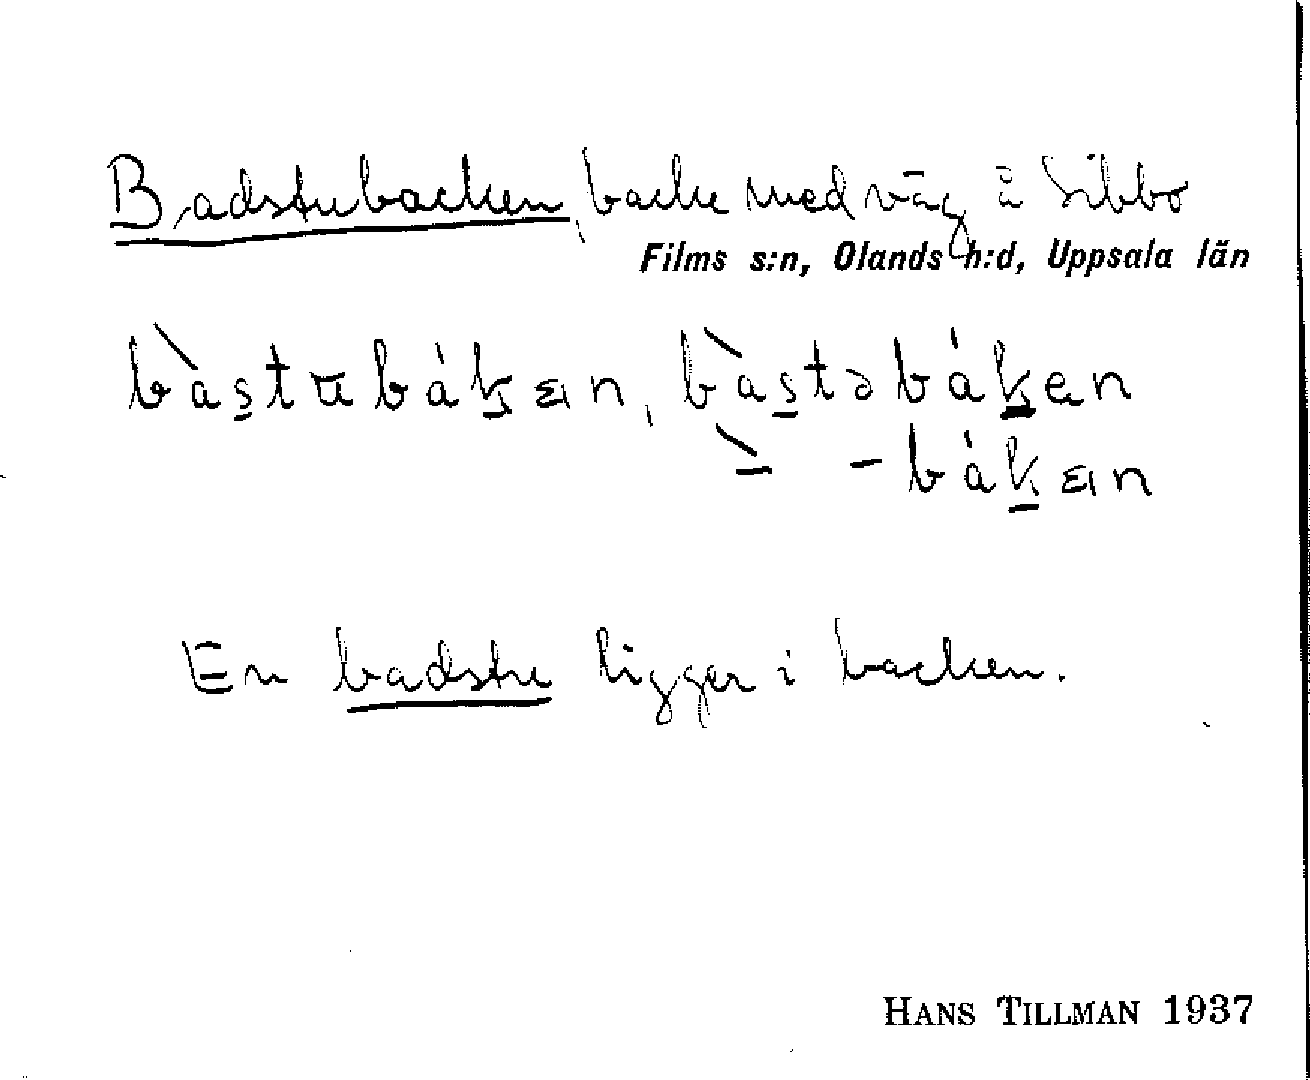 Badstubacken, backe med väg å Sibbo
Films s:n, Olands h:d, Uppsala län
bàstubákæn, bàstəbáken
` - -bákæn
En badstu ligger i backen.
HANS TILLMAN 1937